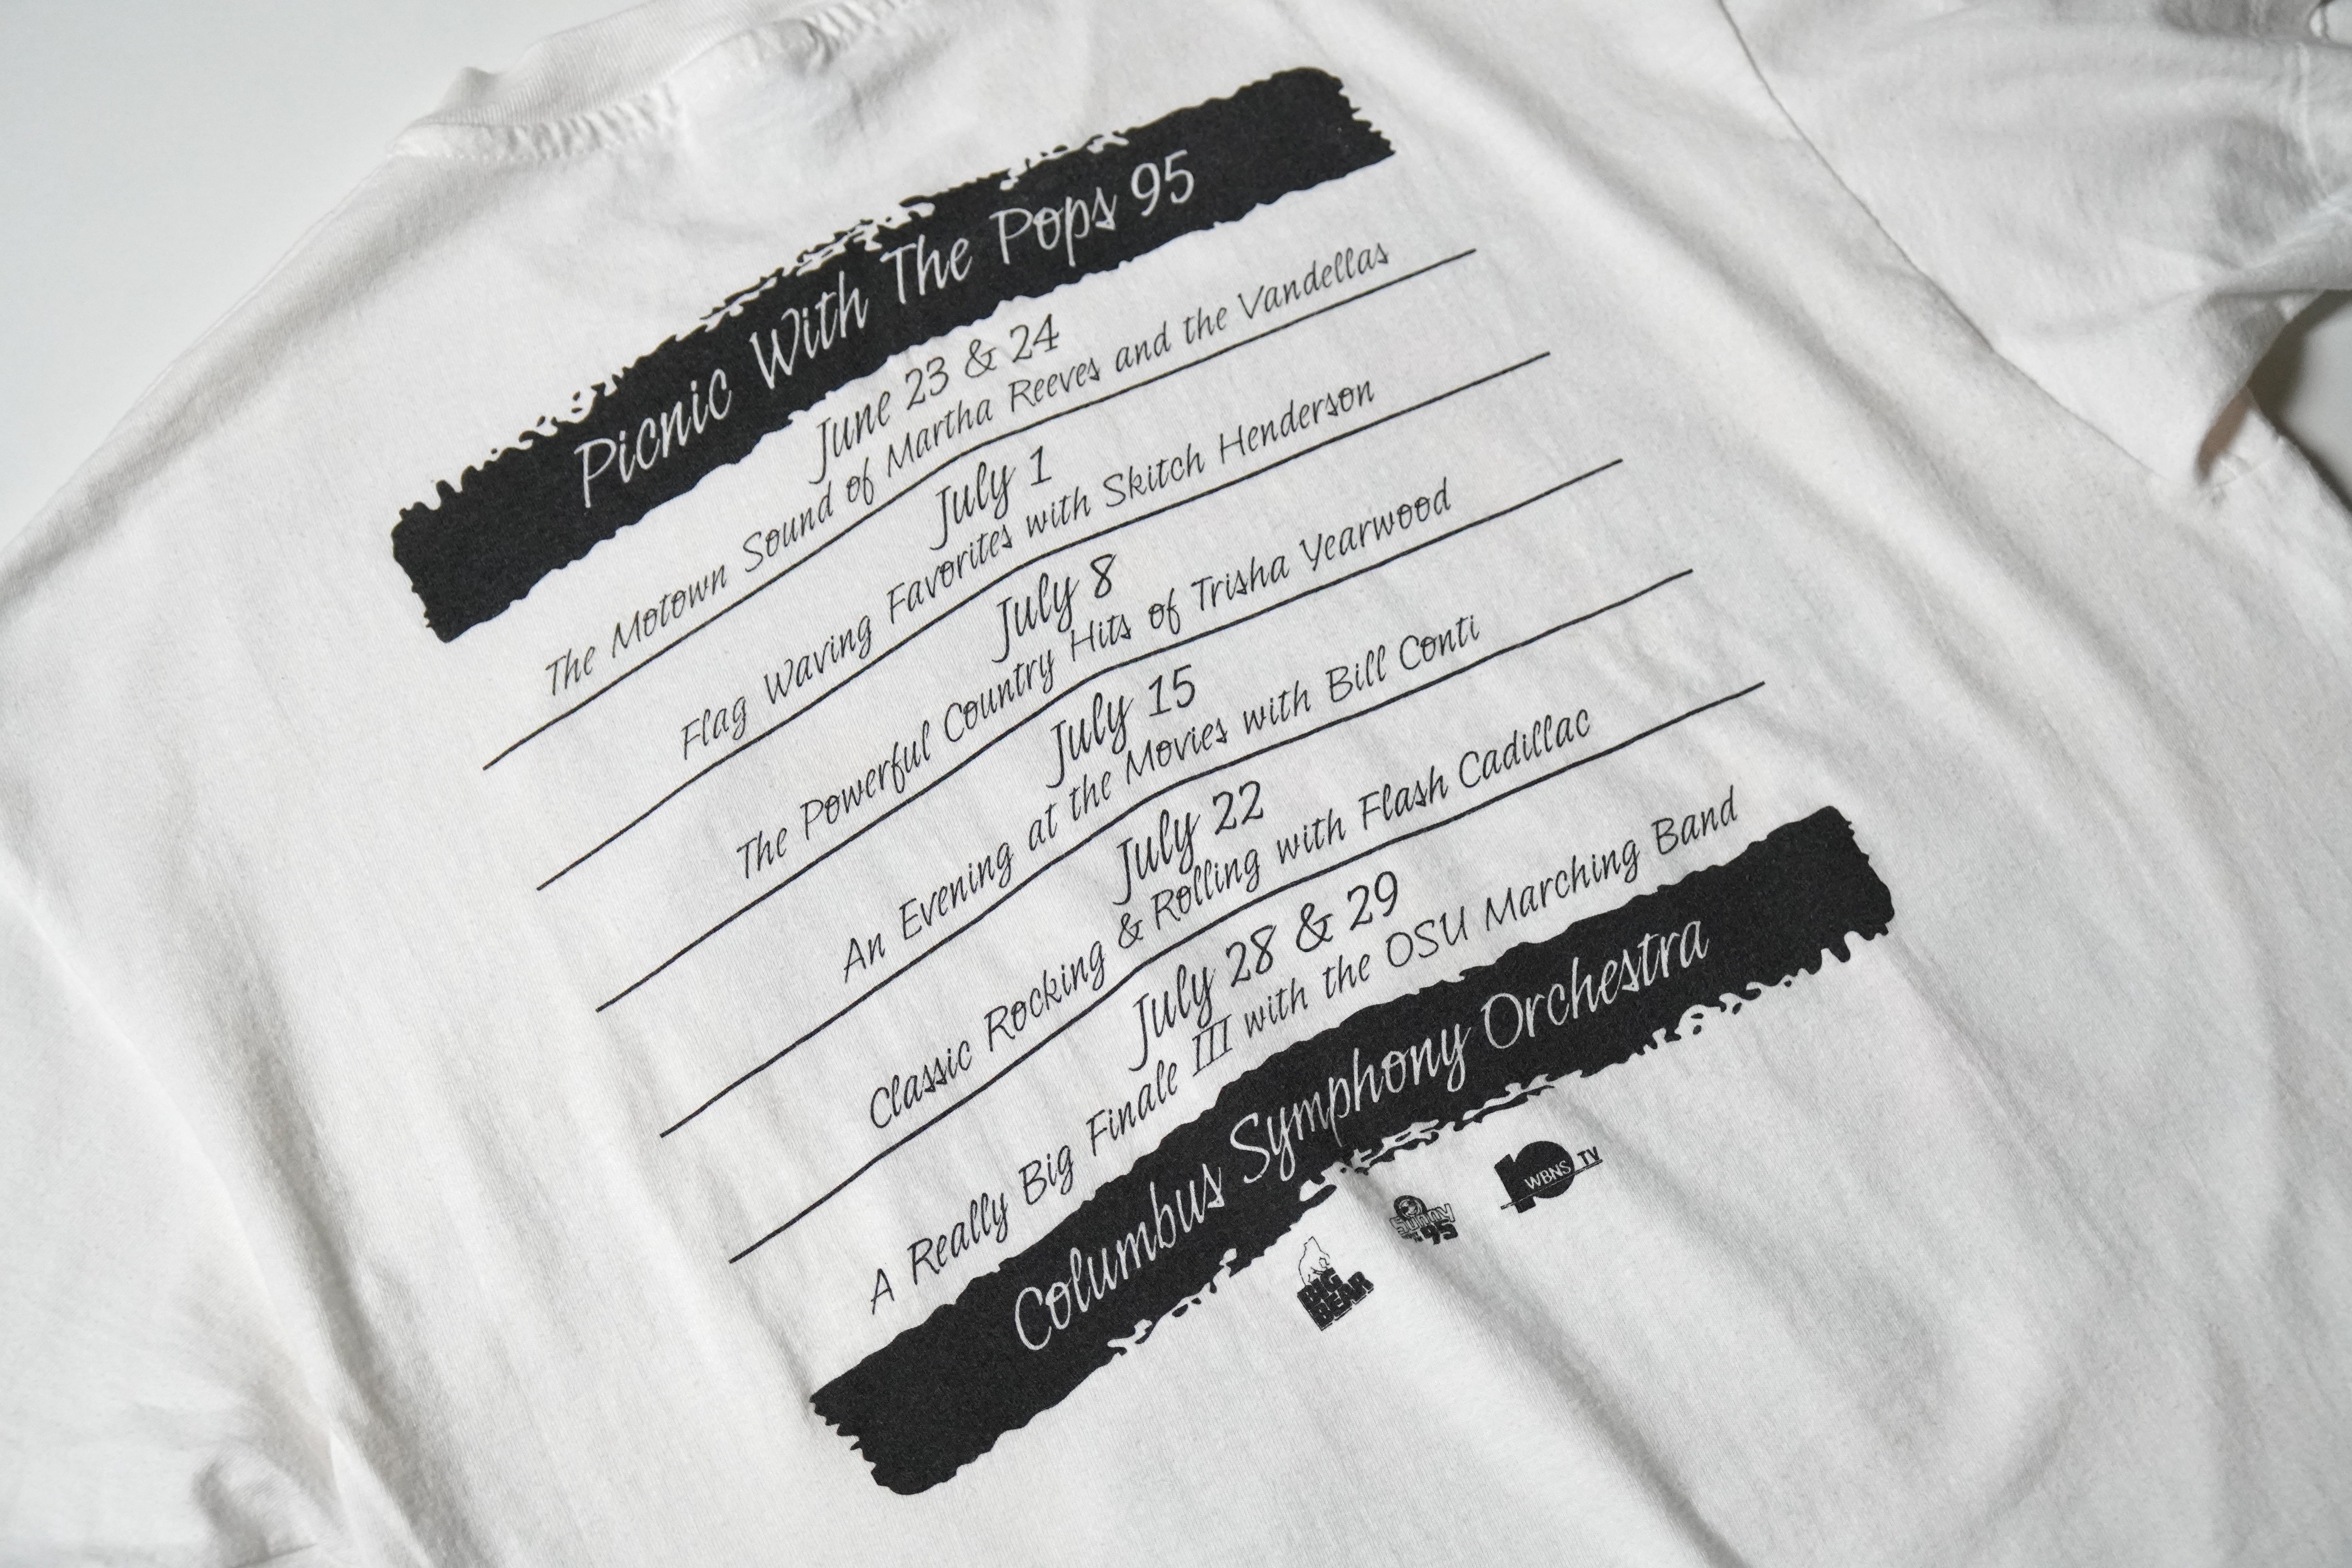 Picnic With The Pops 95
June 23 & 24
The Motown Sound of Martha Reeves and the Vandellas
July 1
Flag Waving Favorites with Skitch Henderson
July 8
The Powerful Country Hits of Trisha Yearwood
July 15
An Evening at the Movies with Bill Conti
July 22
Classic Rocking & Rolling with Flash Cadillac
July 28 & 29
A Really Big Finale III with the OSU Marching Band
Columbus Symphony Orchestra
BIG
BEAR
Sunny
95
10
WBNS TV